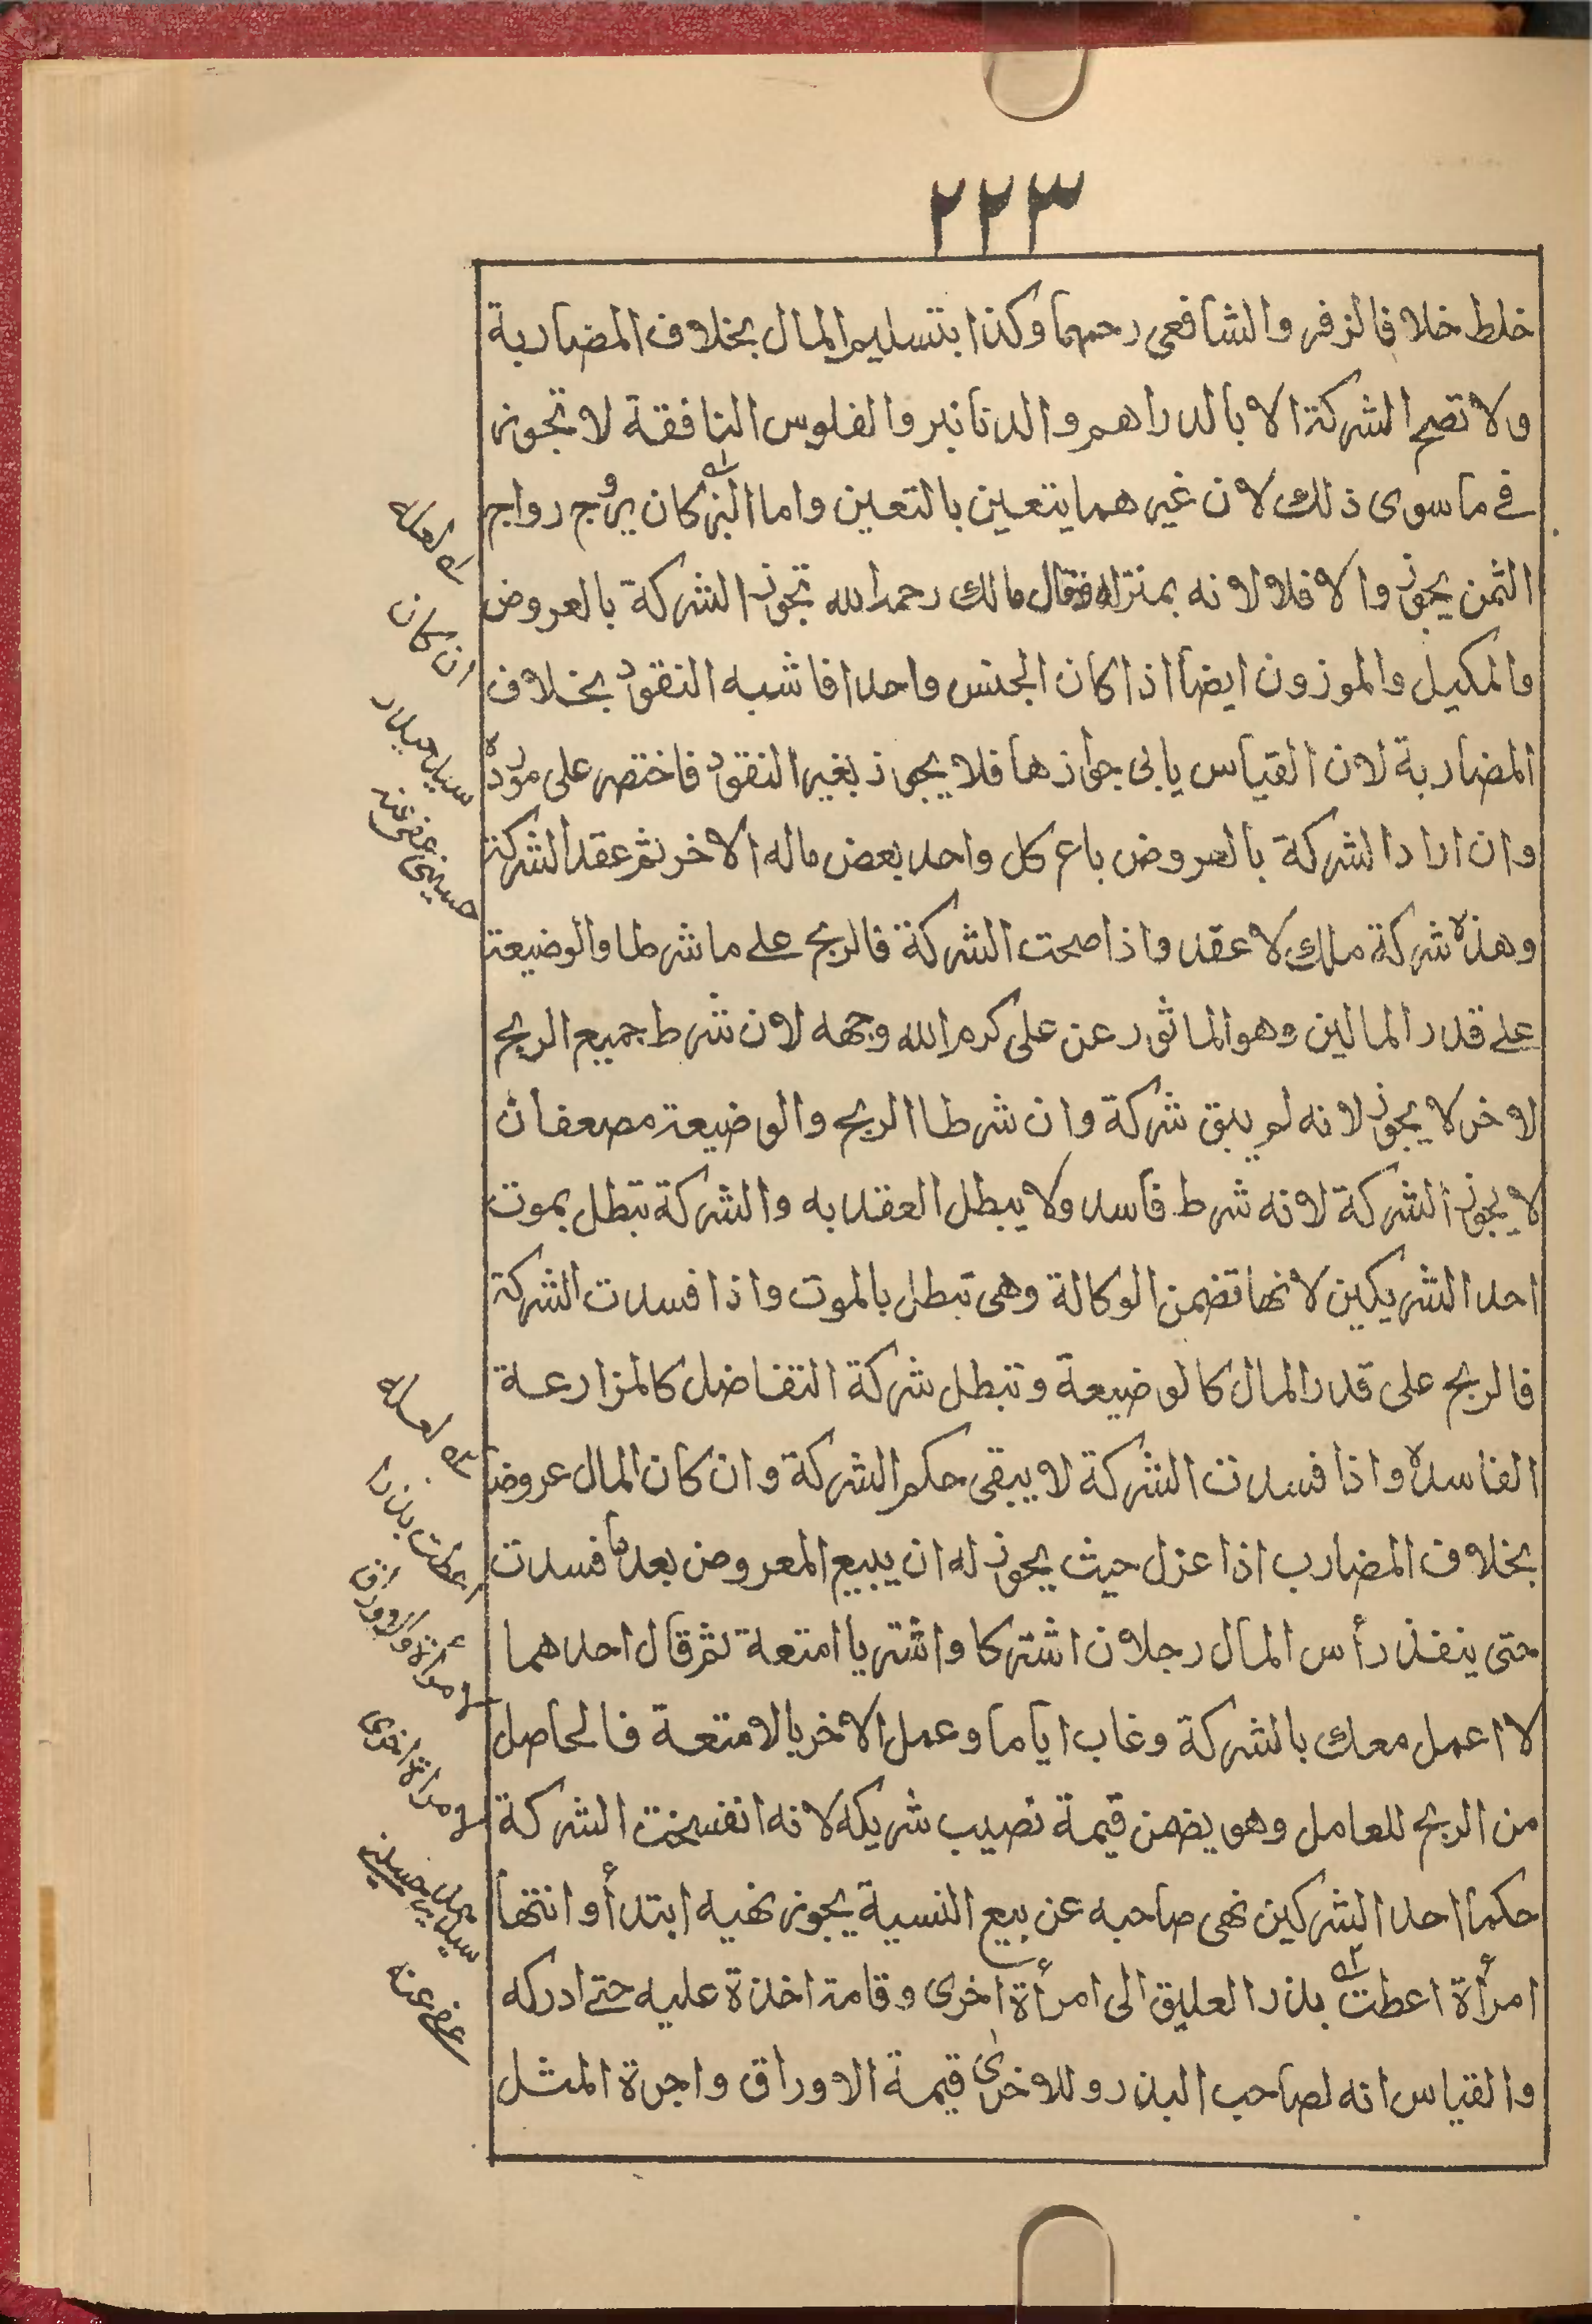 ٢٢٣
خلط خلا فالزفر والشافعى رحمهما وكذا بتسليم المال بخلاف المضاربة
ولا تصح الشركة الا بالدراهم والدنانير والفلوس النافقة لا تجوز
فے ما سوى ذلك لان غير هما يتعين بالتعين واما البز كان يروج رواج
الثمن يجوز والا فلا لانه بمنزله فقال مالك رحمه الله تجوز الشركة بالعروض
والمكيل والموزون ايضا اذا كان الجنس واحدا فاشبه النقود بخلاف
المضاربة لان القياس يابى جوازها فلا يجوز بغير النقود فاختصر على مورده
وان ارادا لشركة بالعروض باع كل واحد بعض ماله الاخر ثم عقد الشركة
وهذه شركة ملك لا عقد واذا صحت الشركة فالربح علے ما شرطا والوضيعة
علے قدر المالين وهو الماثور عن على كرم الله وجهه لان شرط جميع الربح
لاخر لا يجوز لانه لم يبق شركة وان شرطا الربح والوضيعة مصعفان
لا يجوز الشركة لانه شرط فاسد ولا يبطل العقد به والشركة تبطل بموت
احد الشريكين لانها تضمن الوكالة وهى تبطل بالموت واذا فسدت الشركة
فالربح على قدر المال كالوضيعة وتبطل شركة التفاضل كالمزارعة
الفاسدة واذا فسدت الشركة لا يبقى حكم الشركة وان كان المال عروضا
بخلاف المضارب اذا عزل حيث يجوز له ان يبيع المعروض بعد ما فسدت
حتى ينفذ رأس المال رجلان اشتركا واشتريا امتعة ثم قال احدهما
لا اعمل معك بالشركة وغاب اياما وعمل الاخر بالامتعة فالحاصل
من الربح للعامل وهو يضمن قيمة نصيب شريكه لانه انفسخت الشركة
حكما احد الشركين نهى صاحبه عن بيع النسية يجوز نهيه ابتدأ وانتهأ
امرأة اعطت بذر العليق الى امرأة اخرى وقامة اخذة عليه حتے ادركه
والقياس انه لصاحب البذر وللاخرى قيمة الاوراق واجرة المثل
لعله
ان كان
سيد حيدر
حسينى عفى عنه
لعله
اعطت بذر
امرأة
امرأة اخرى
حسينے
عفى عنه